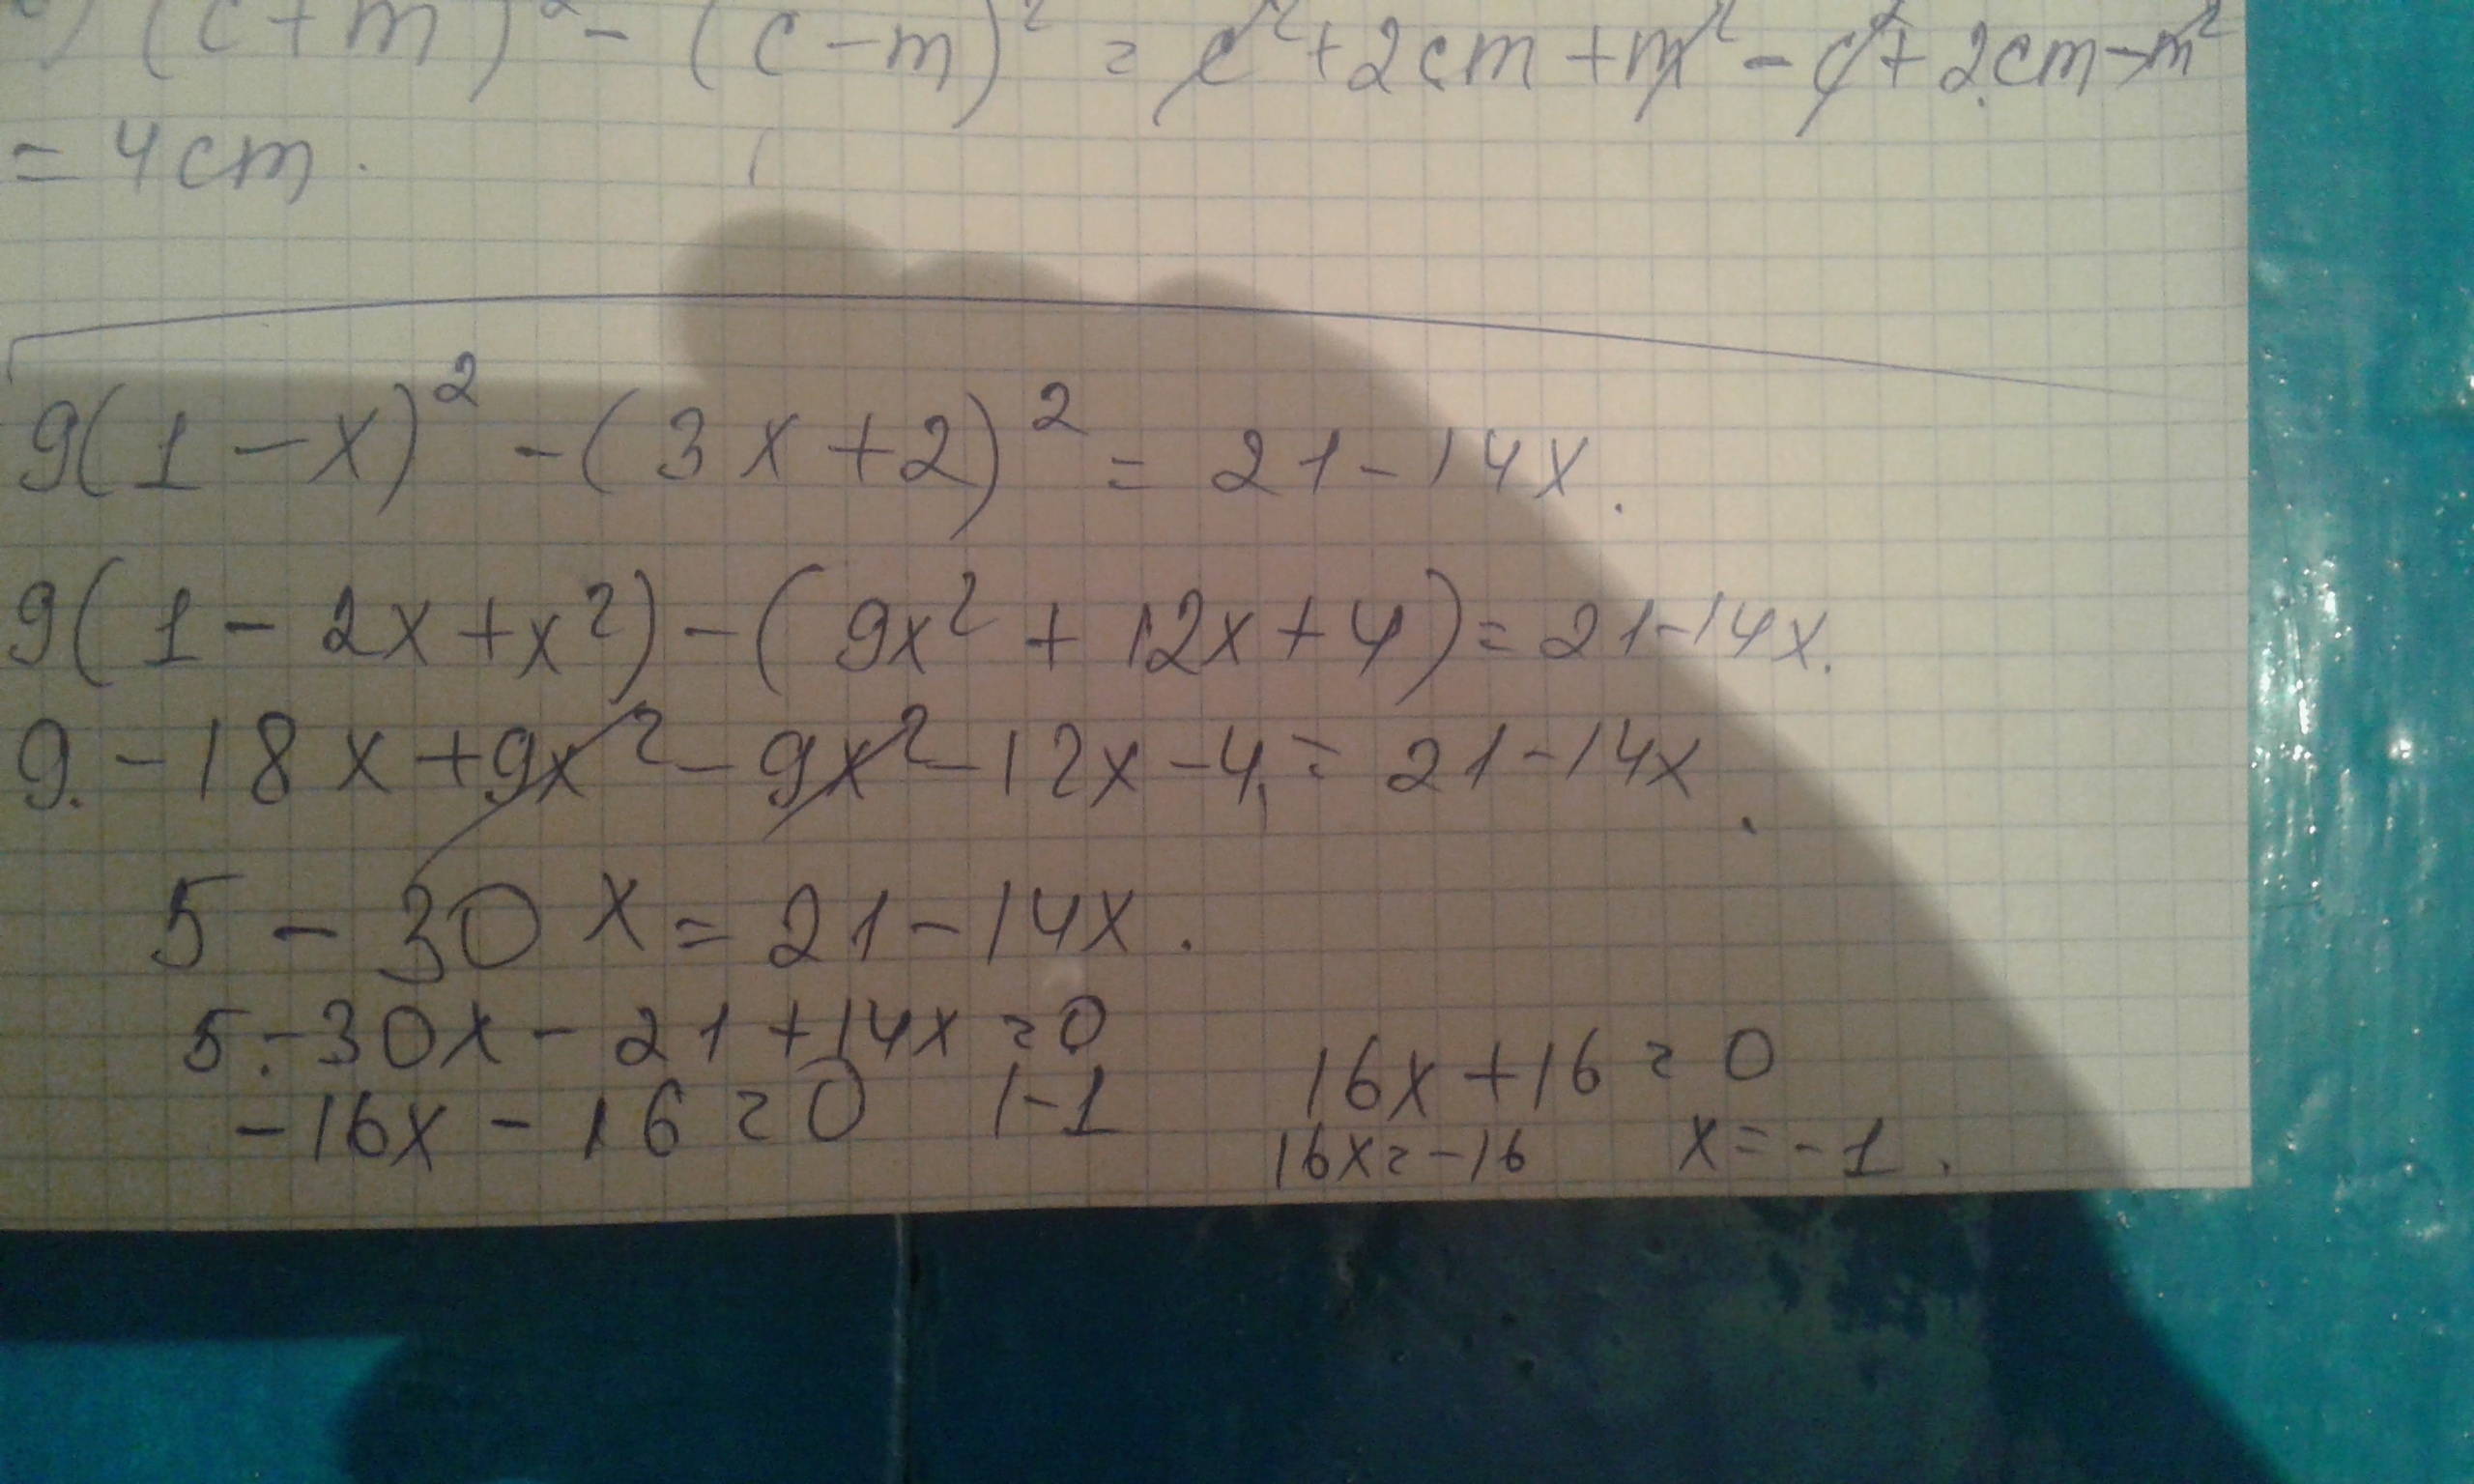 ) (c+m)² - (c-m)² = c²+2cm+m²-c²+2cm-m²
= 4cm.
9(1-x)² - (3x+2)² = 21-14x.
9(1-2x+x²)-(9x²+12x+4)=21-14x.
9-18x+9x²-9x²-12x-4=21-14x.
5-30x=21-14x.
5-30x-21+14x=0
-16x-16=0 |-1
16x+16=0
16x=-16 x=-1.